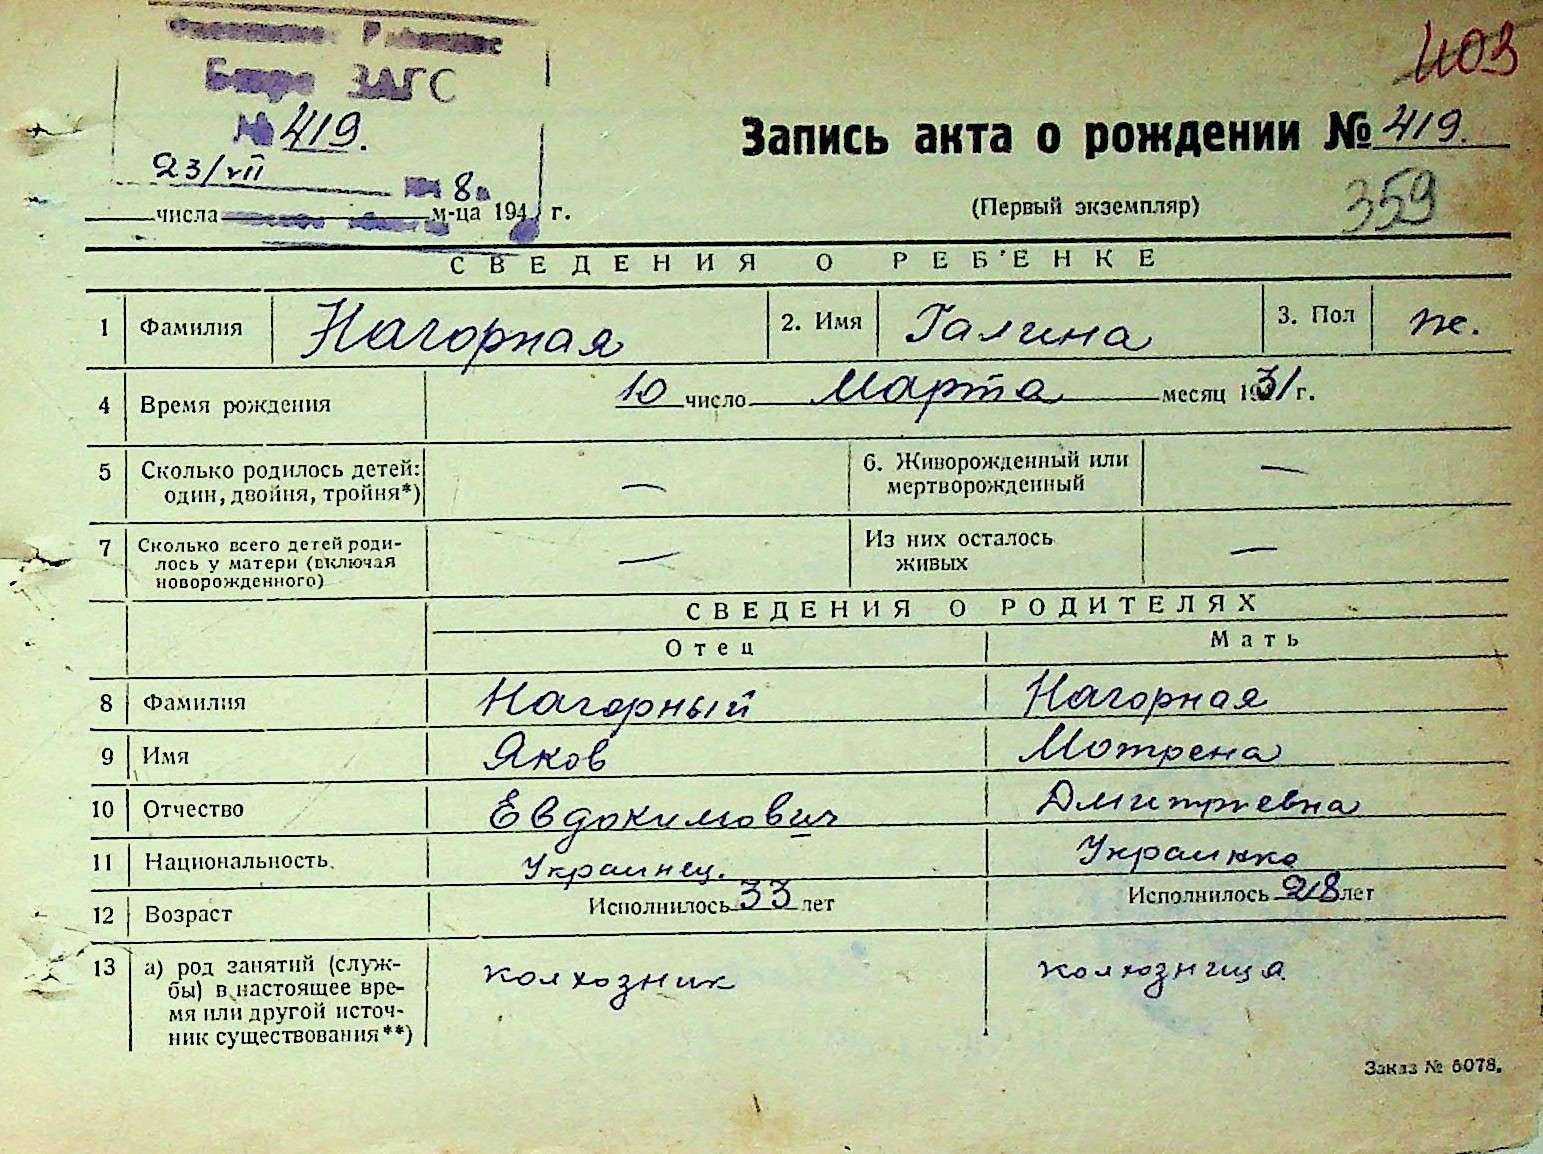 403
Бюро ЗАГС
№ 419.
23/VII 8 г.
числа м-ца 194 г.
Запись акта о рождении № 419.
(Первый экземпляр)
359
СВЕДЕНИЯ О РЕБ'ЕНКЕ
1 Фамилия Нагорная 2. Имя Галина 3. Пол ж.
4 Время рождения 10 число Марта месяц 1931 г.
5 Сколько родилось детей: — 6. Живорожденный или —
один, двойня, тройня*) мертворожденный
7 Сколько всего детей роди- — Из них осталось —
лось у матери (включая живых
новорожденного)
СВЕДЕНИЯ О РОДИТЕЛЯХ
Отец Мать
8 Фамилия Нагорный Нагорная
9 Имя Яков Мотрена
10 Отчество Евдокимович Дмитриевна
11 Национальность Украинец. Украинка
12 Возраст Исполнилось 33 лет Исполнилось 28 лет
13 а) род занятий (служ- колхозник колхозница
бы) в настоящее вре-
мя или другой источ-
ник существования**)
Заказ № 5078.